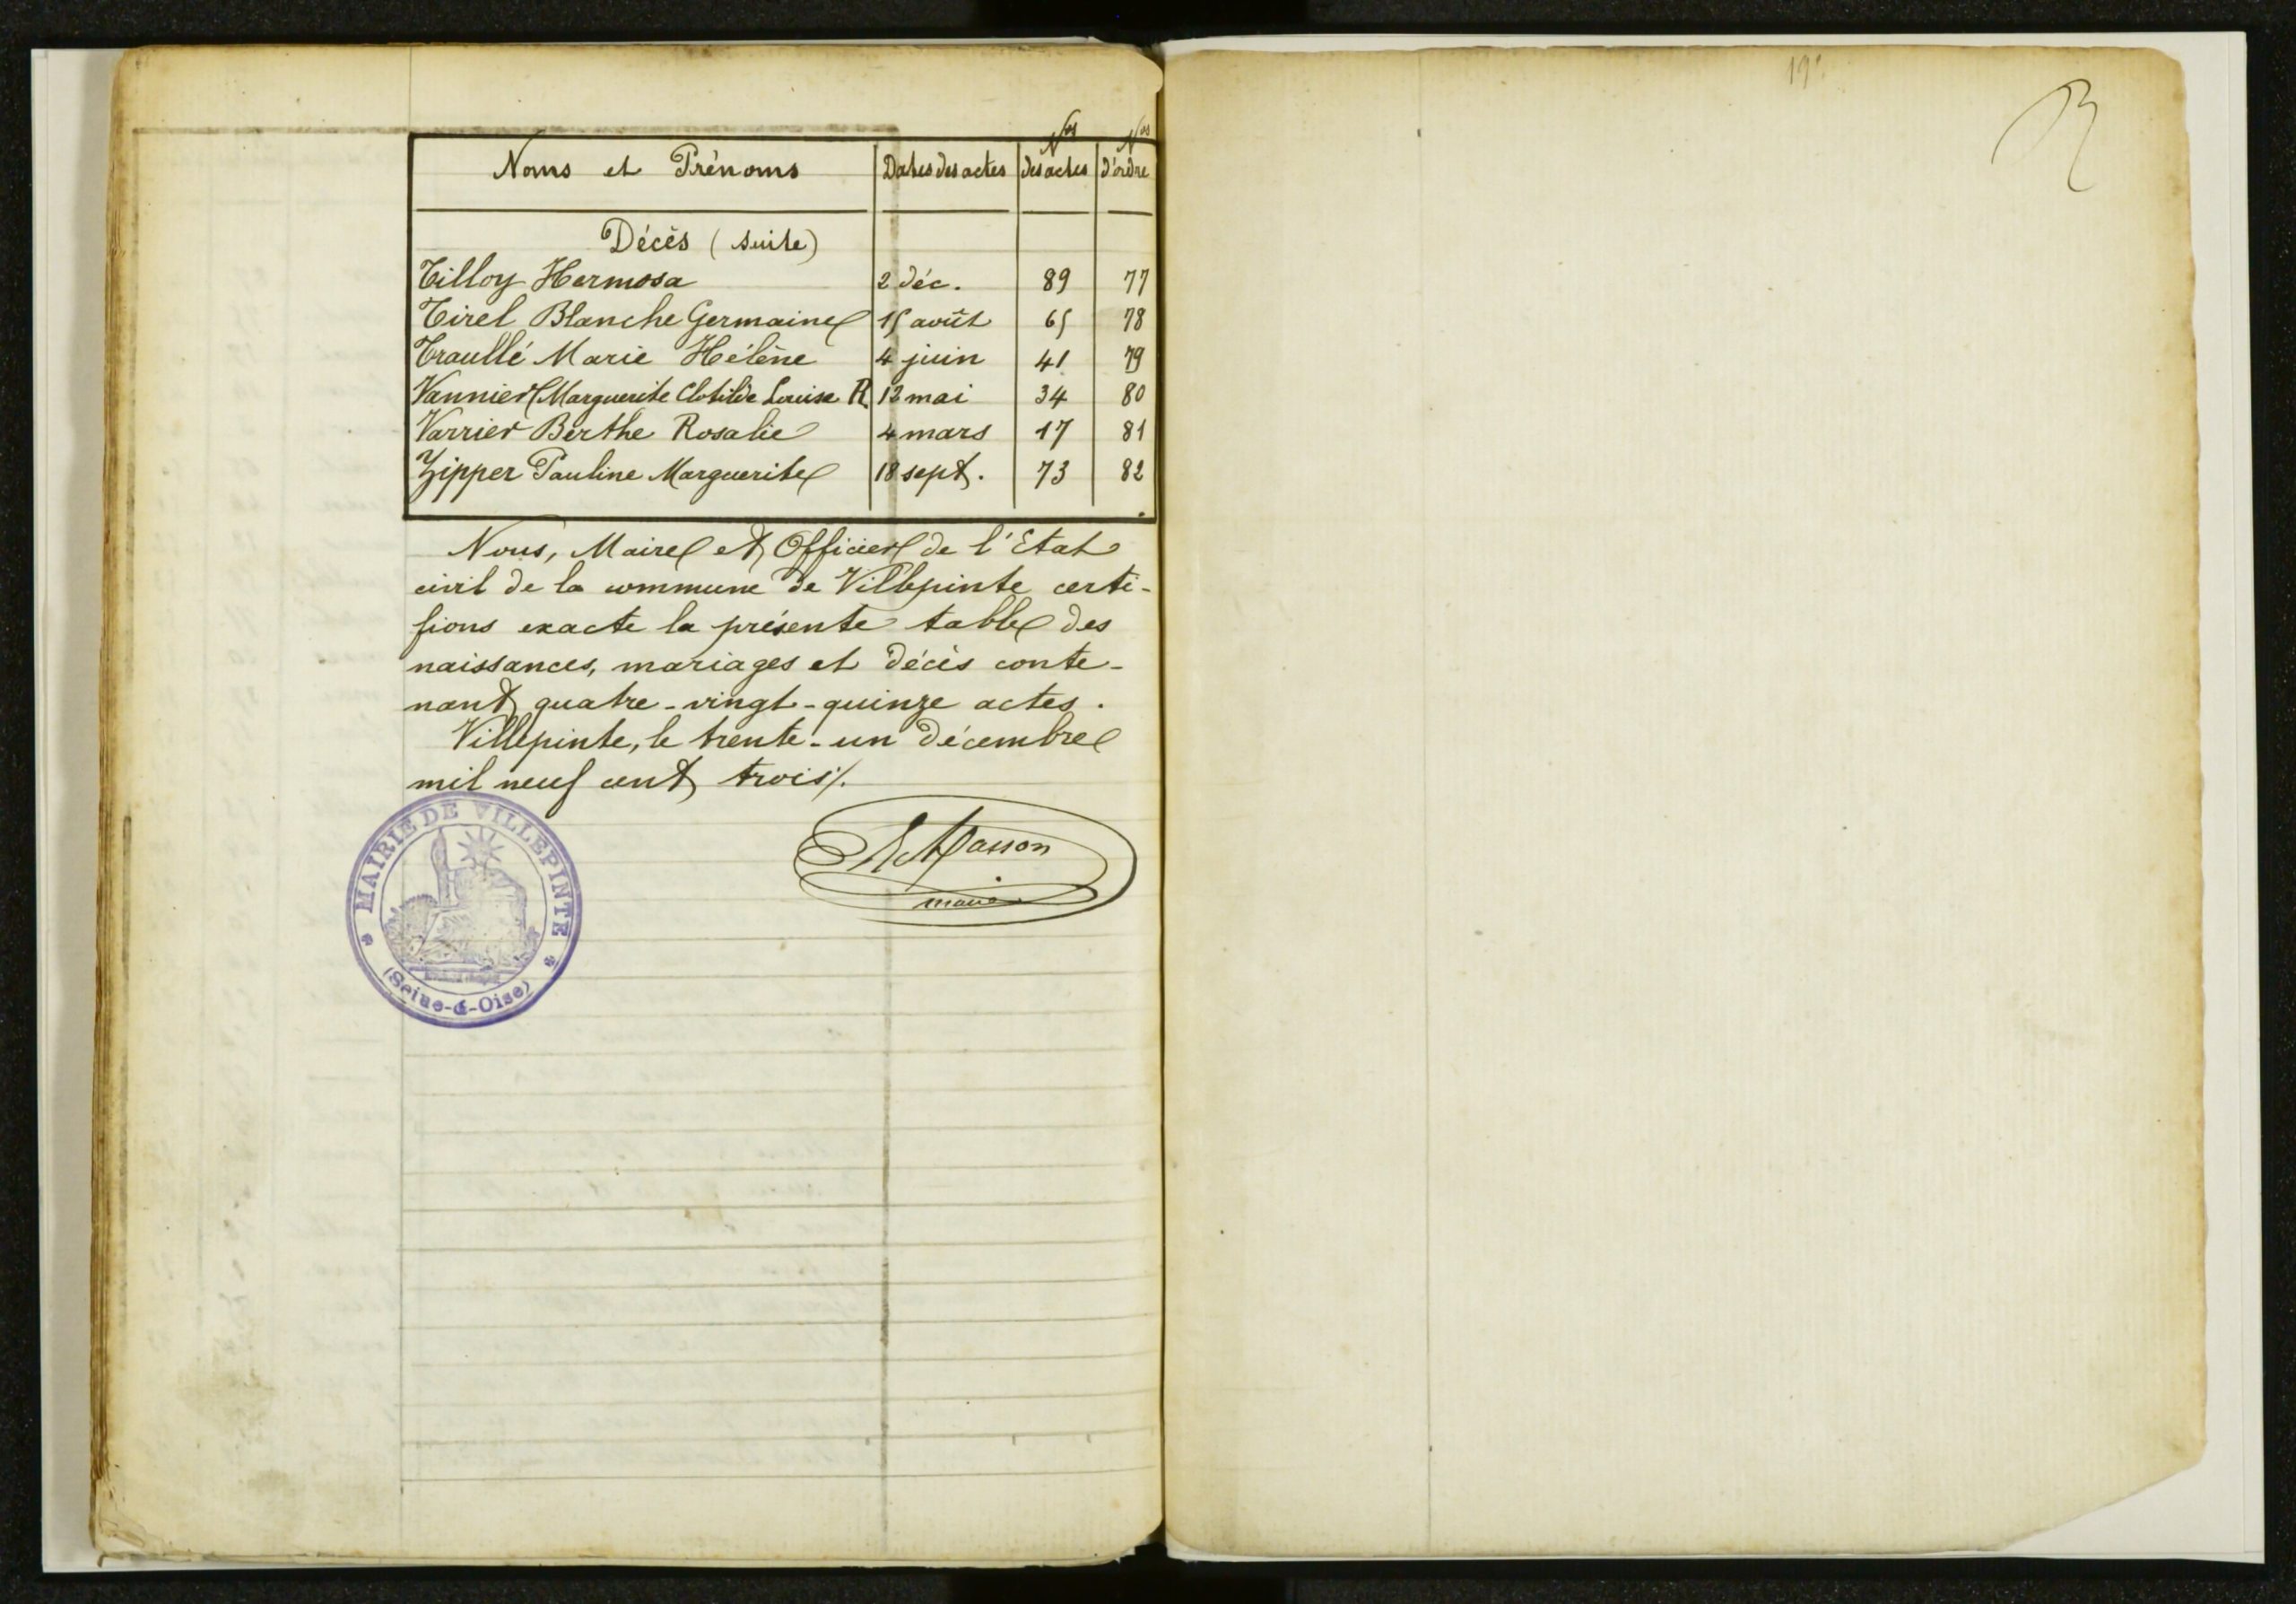 Noms et Prénoms | Dates des actes | Nos des actes | Nos d'ordre
Décès (suite)
Tilloy Hermosa | 2 déc. | 89 | 77
Tirel Blanche Germaine | 15 août | 65 | 78
Traullé Marie Hélène | 4 juin | 41 | 79
Vannier Marguerite Clotilde Louise R. | 12 mai | 34 | 80
Varrier Berthe Rosalie | 4 mars | 17 | 81
Zipper Pauline Marguerite | 18 sept. | 73 | 82
Nous, Maire et Officier de l'Etat
civil de la commune de Villepinte certi-
fions exacte la présente table des
naissances, mariages et décès conte-
nant quatre-vingt-quinze actes.
Villepinte, le trente-un décembre
mil neuf cent trois ./.
Masson
maire
MAIRIE DE VILLEPINTE
(Seine-&-Oise)
19